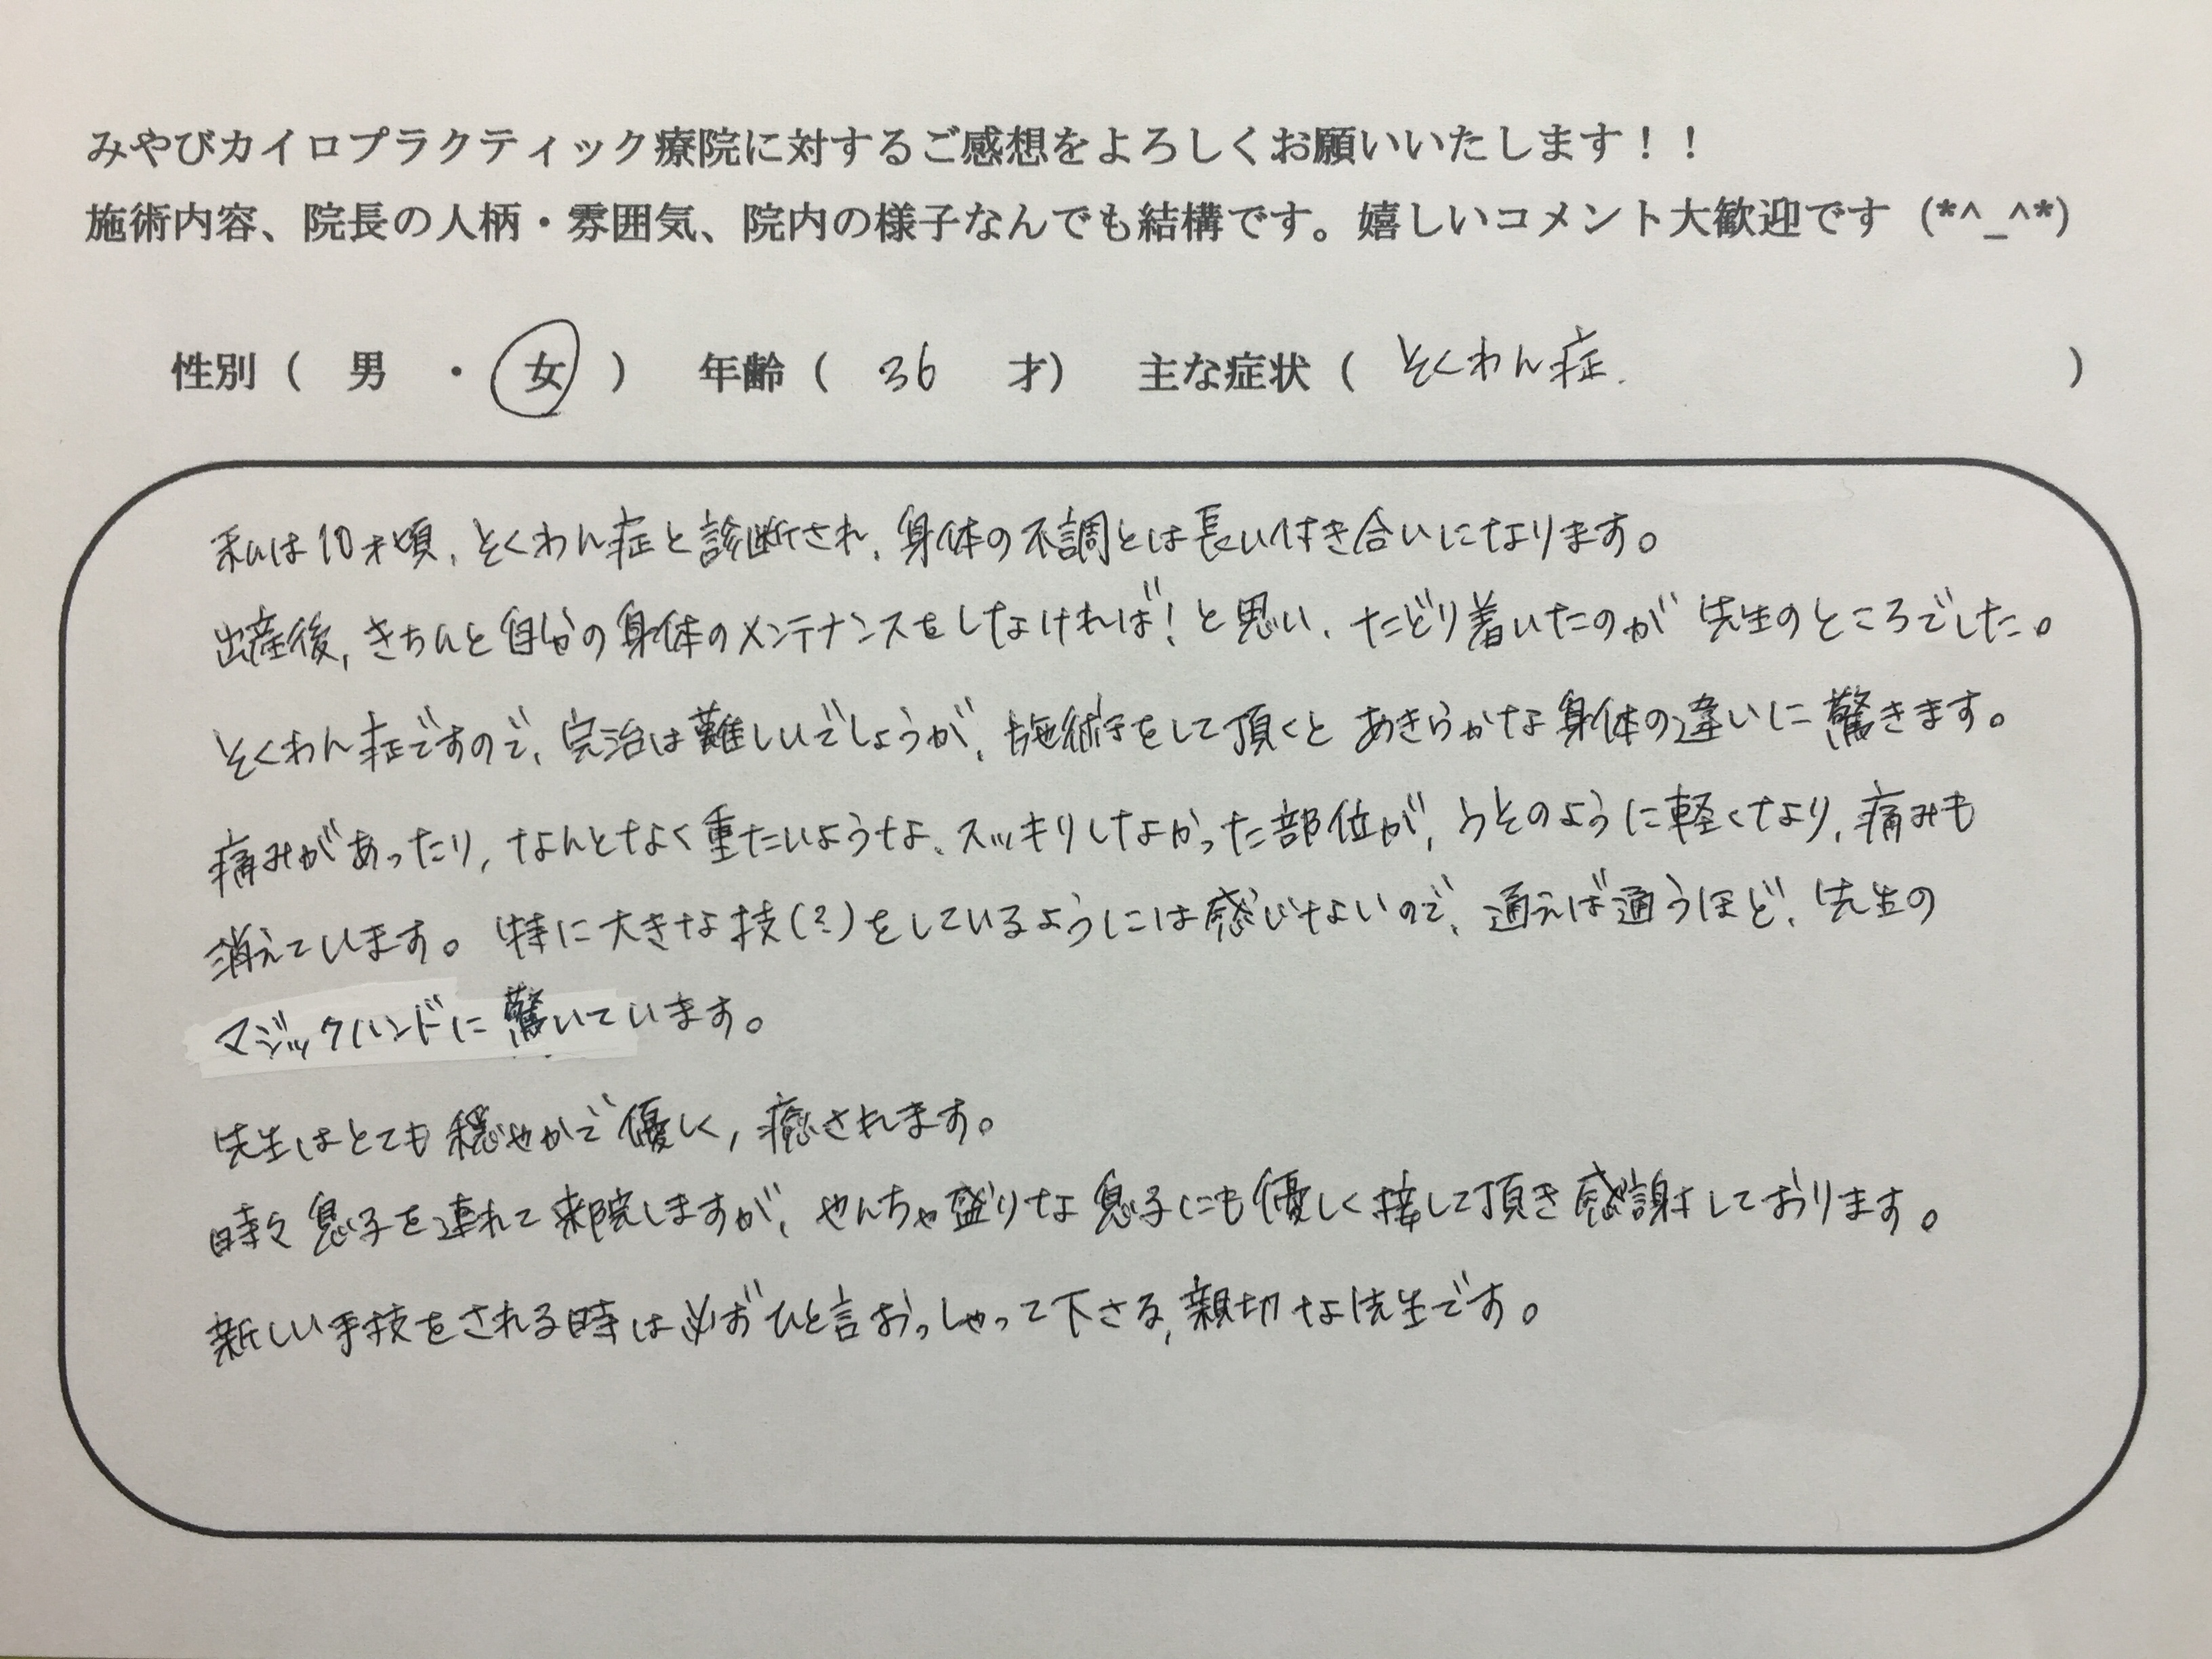 みやびカイロプラクティック療院に対するご感想をよろしくお願いいたします！！
施術内容、院長の人柄・雰囲気、院内の様子なんでも結構です。嬉しいコメント大歓迎です（*^_^*）
性別（ 男 ・ 女 ） 年齢（ 36 才） 主な症状（ そくわん症. ）
私は10才頃、そくわん症と診断され、身体の不調とは長い付き合いになります。
出産後、きちんと自分の身体のメンテナンスをしなければ！と思い、たどり着いたのが先生のところでした。
そくわん症ですので、完治は難しいでしょうが、施術をして頂くとあきらかな身体の違いに驚きます。
痛みがあったり、なんとなく重たいような、スッキリしなかった部位が、うそのように軽くなり、痛みも
消えています。特に大きな技（？）をしているようには感じないので、通えば通うほど、先生の
マジックハンドに驚いています。
先生はとても穏やかで優しく、癒されます。
時々息子を連れて来院しますが、やんちゃ盛りな息子にも優しく接して頂き感謝しております。
新しい手技をされる時は必ずひと言おっしゃって下さる、親切な先生です。